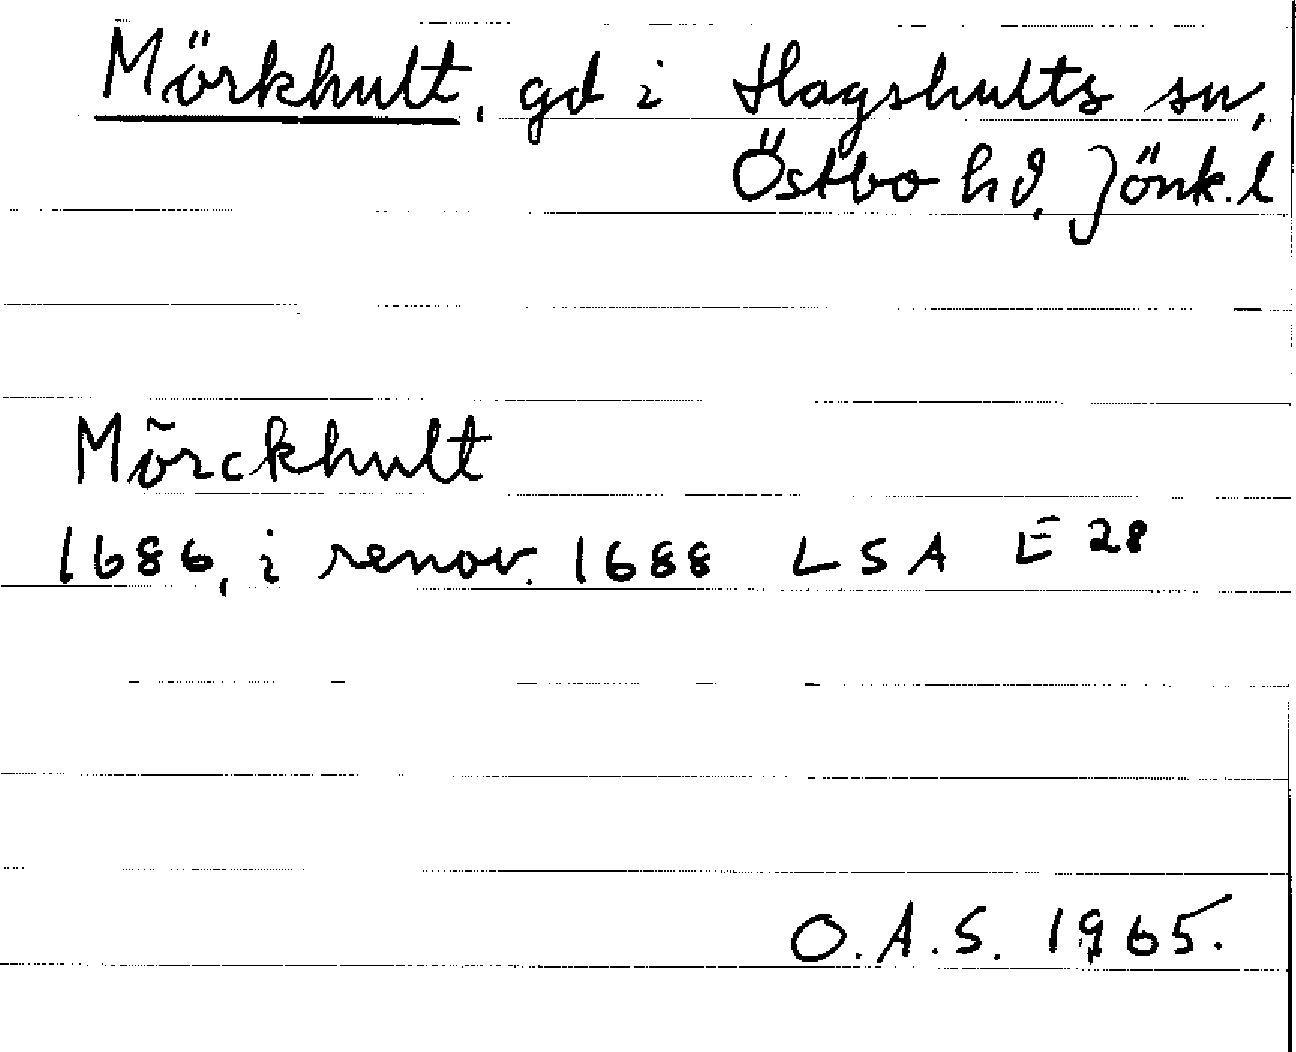 Mörkhult, gd i Hagshults sn,
Östbo hd, Jönk.l
Mõrckhult
1686, i renov. 1688 LSA E 28
O.A.S. 1965.